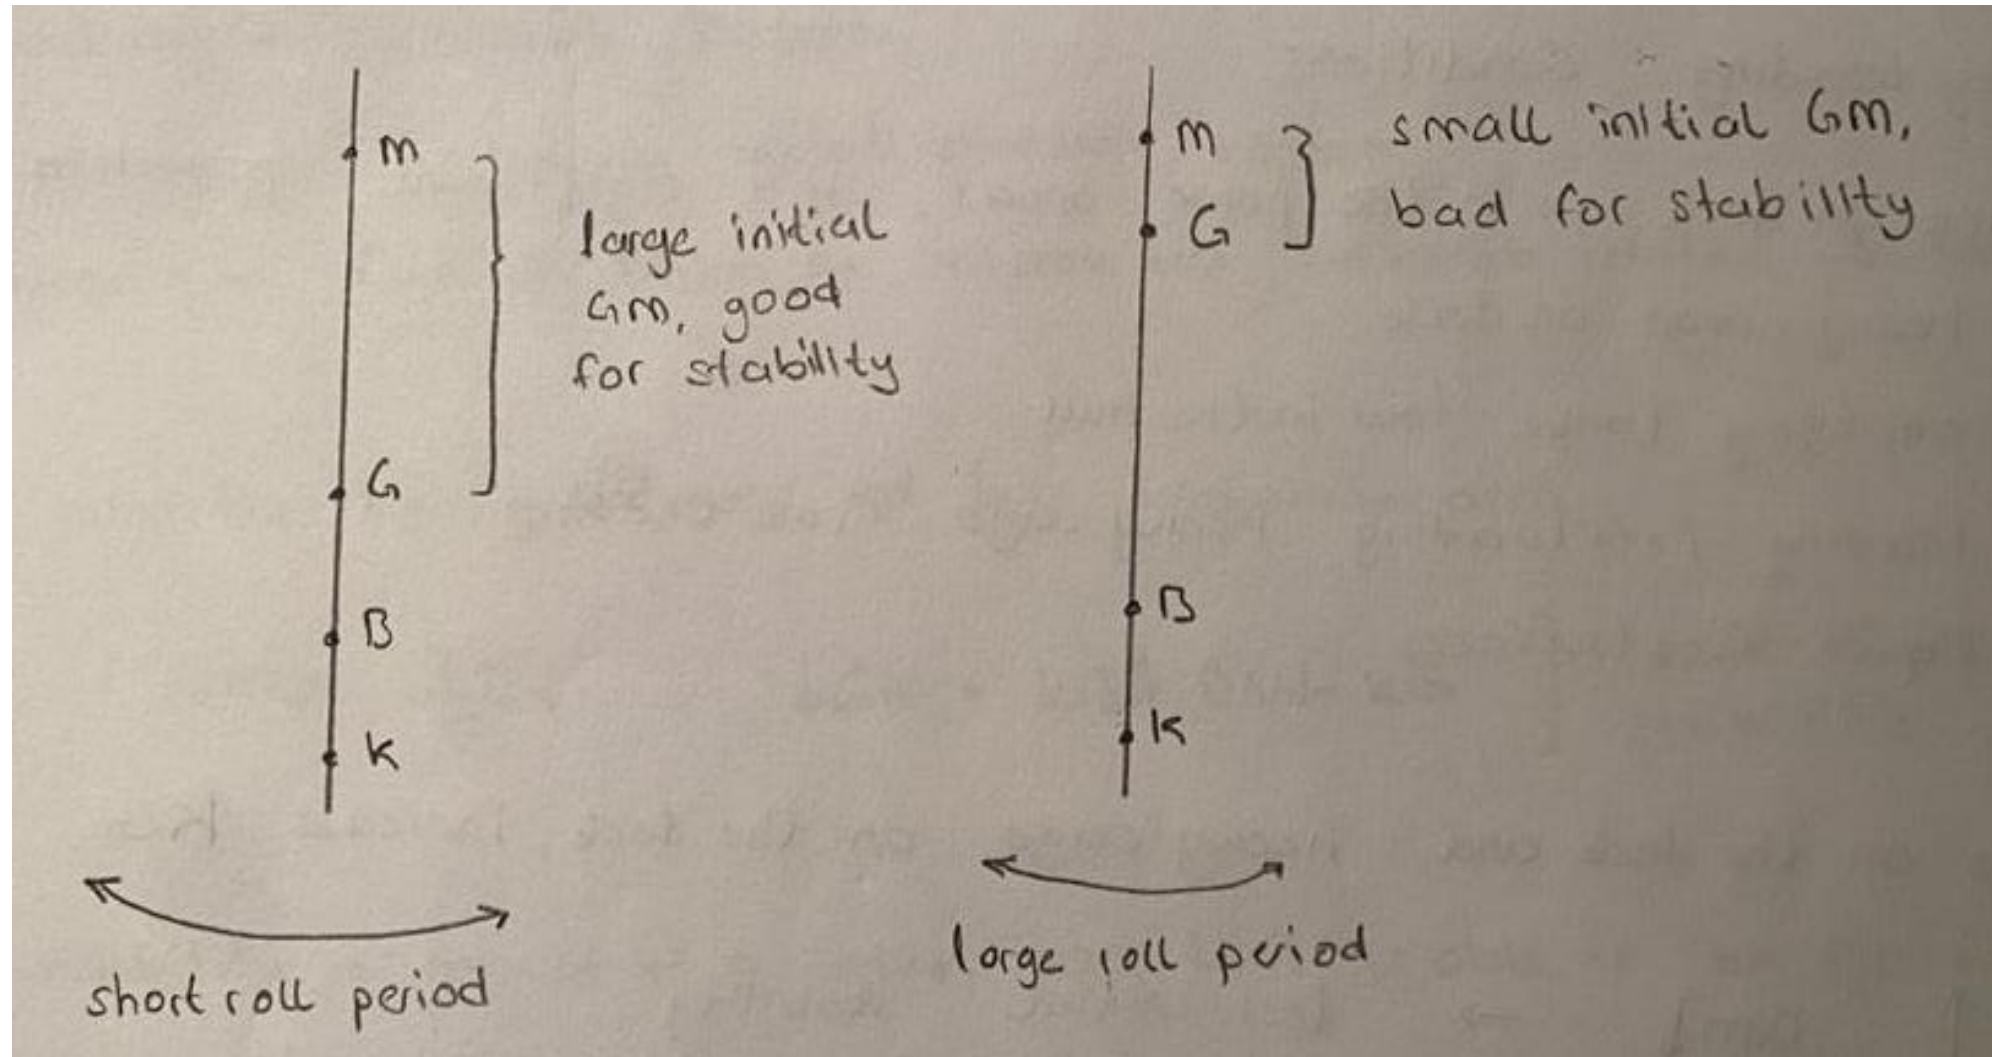 m
G
B
K
large initial
Gm, good
for stability
short roll period
m
G
B
K
small initial Gm,
bad for stability
large roll period